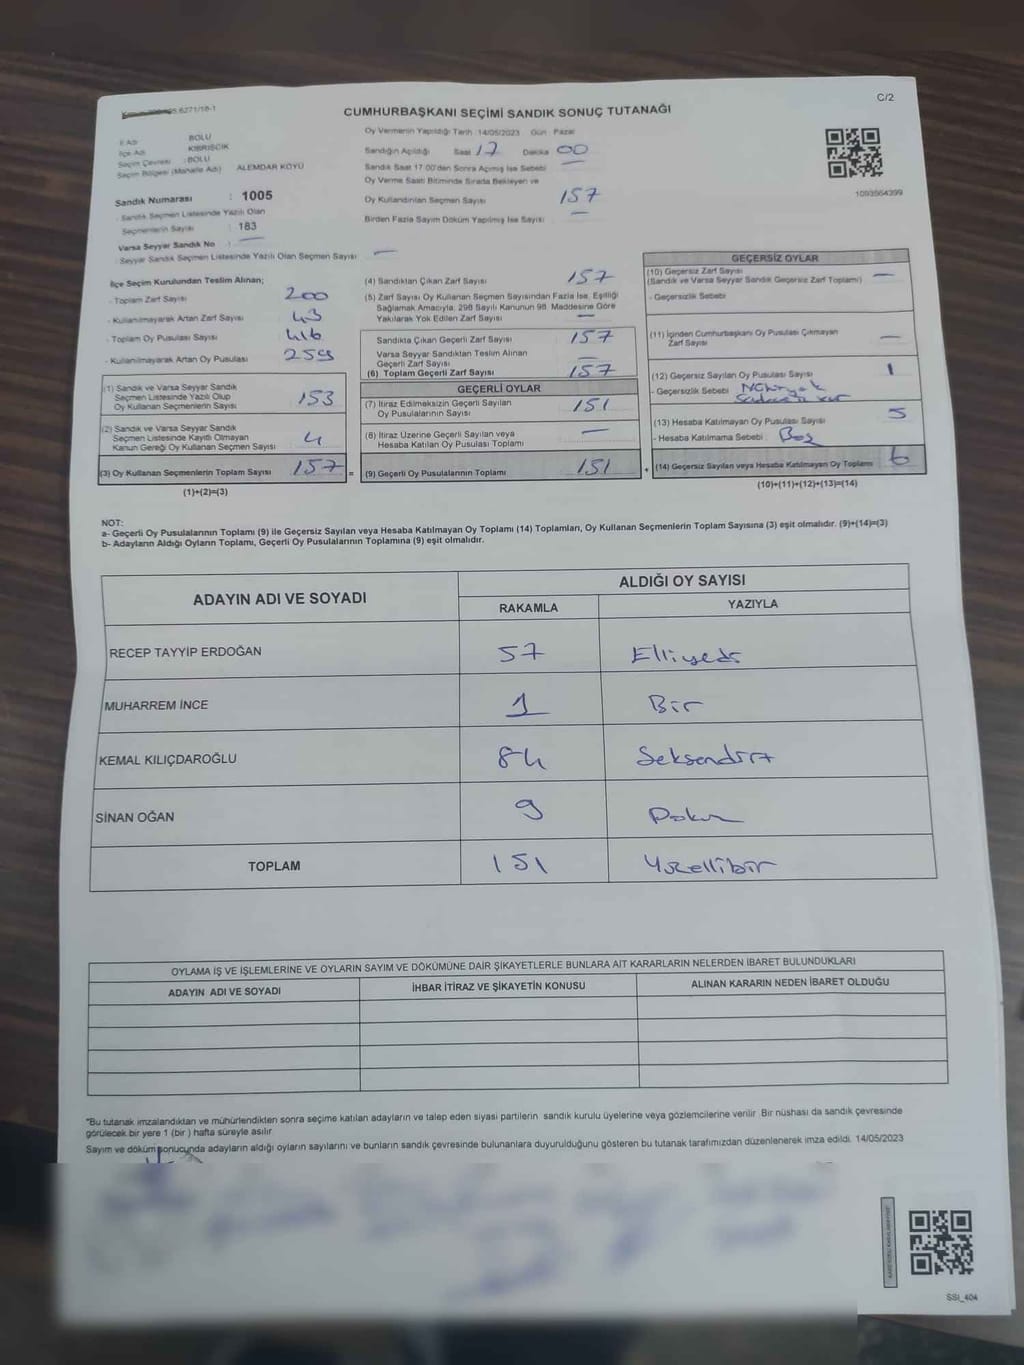 C/2
CUMHURBAŞKANI SEÇİMİ SANDIK SONUÇ TUTANAĞI
İl Adı : BOLU
İlçe Adı : KIBRISCIK
Seçim Çevresi : BOLU
Seçim Bölgesi (Mahalle Adı) ALEMDAR KÖYÜ
Sandık Numarası : 1005
- Sandık Seçmen Listesinde Yazılı Olan
Seçmenlerin Sayısı : 183
Varsa Seyyar Sandık No : —
- Seyyar Sandık Seçmen Listesinde Yazılı Olan Seçmen Sayısı —
Oy Vermenin Yapıldığı Tarih 14/05/2023 Gün Pazar
Sandığın Açıldığı Saat 17 Dakika 00
Sandık Saat 17.00'den Sonra Açılmış İse Sebebi —
Oy Verme Saati Bitiminde Sırada Bekleyen ve
Oy Kullandırılan Seçmen Sayısı 157
Birden Fazla Sayım Döküm Yapılmış İse Sayısı —
1093564399
İlçe Seçim Kurulundan Teslim Alınan;
- Toplam Zarf Sayısı 200
- Kullanılmayarak Artan Zarf Sayısı 43
- Toplam Oy Pusulası Sayısı 416
- Kullanılmayarak Artan Oy Pusulası 259
(1) Sandık ve Varsa Seyyar Sandık
Seçmen Listesinde Yazılı Olup
Oy Kullanan Seçmenlerin Sayısı 153
(2) Sandık ve Varsa Seyyar Sandık
Seçmen Listesinde Kayıtlı Olmayan
Kanun Gereği Oy Kullanan Seçmen Sayısı 4
(3) Oy Kullanan Seçmenlerin Toplam Sayısı 157 =
(1)+(2)=(3)
(4) Sandıktan Çıkan Zarf Sayısı 157
(5) Zarf Sayısı Oy Kullanan Seçmen Sayısından Fazla İse, Eşitliği
Sağlamak Amacıyla, 298 Sayılı Kanunun 98. Maddesine Göre
Yakılarak Yok Edilen Zarf Sayısı —
Sandıkta Çıkan Geçerli Zarf Sayısı 157
Varsa Seyyar Sandıktan Teslim Alınan
Geçerli Zarf Sayısı —
(6) Toplam Geçerli Zarf Sayısı 157
GEÇERLİ OYLAR
(7) İtiraz Edilmeksizin Geçerli Sayılan
Oy Pusulalarının Sayısı 151
(8) İtiraz Üzerine Geçerli Sayılan veya
Hesaba Katılan Oy Pusulası Toplamı —
(9) Geçerli Oy Pusulalarının Toplamı 151 +
GEÇERSİZ OYLAR
(10) Geçersiz Zarf Sayısı
(Sandık ve Varsa Seyyar Sandık Geçersiz Zarf Toplamı) —
- Geçersizlik Sebebi
(11) İçinden Cumhurbaşkanı Oy Pusulası Çıkmayan
Zarf Sayısı —
(12) Geçersiz Sayılan Oy Pusulası Sayısı 1
- Geçersizlik Sebebi
(13) Hesaba Katılmayan Oy Pusulası Sayısı 5
- Hesaba Katılmama Sebebi Boş
(14) Geçersiz Sayılan veya Hesaba Katılmayan Oy Toplamı 6
(10)+(11)+(12)+(13)=(14)
NOT:
a- Geçerli Oy Pusulalarının Toplamı (9) ile Geçersiz Sayılan veya Hesaba Katılmayan Oy Toplamı (14) Toplamları, Oy Kullanan Seçmenlerin Toplam Sayısına (3) eşit olmalıdır. (9)+(14)=(3)
b- Adayların Aldığı Oyların Toplamı, Geçerli Oy Pusulalarının Toplamına (9) eşit olmalıdır.
ADAYIN ADI VE SOYADI ALDIĞI OY SAYISI
RAKAMLA YAZIYLA
RECEP TAYYİP ERDOĞAN 57 Elliyedi
MUHARREM İNCE 1 Bir
KEMAL KILIÇDAROĞLU 84 Seksendört
SİNAN OĞAN 9 Dokuz
TOPLAM 151 Yüzellibir
OYLAMA İŞ VE İŞLEMLERİNE VE OYLARIN SAYIM VE DÖKÜMÜNE DAİR ŞİKAYETLERLE BUNLARA AİT KARARLARIN NELERDEN İBARET BULUNDUKLARI
ADAYIN ADI VE SOYADI İHBAR İTİRAZ VE ŞİKAYETİN KONUSU ALINAN KARARIN NEDEN İBARET OLDUĞU
*Bu tutanak imzalandıktan ve mühürlendikten sonra seçime katılan adayların ve talep eden siyasi partilerin sandık kurulu üyelerine veya gözlemcilerine verilir. Bir nüshası da sandık çevresinde
görülecek bir yere 1 (bir ) hafta süreyle asılır.
Sayım ve döküm sonucunda adayların aldığı oyların sayılarını ve bunların sandık çevresinde bulunanlara duyurulduğunu gösteren bu tutanak tarafımızdan düzenlenerek imza edildi. 14/05/2023
SSI_404